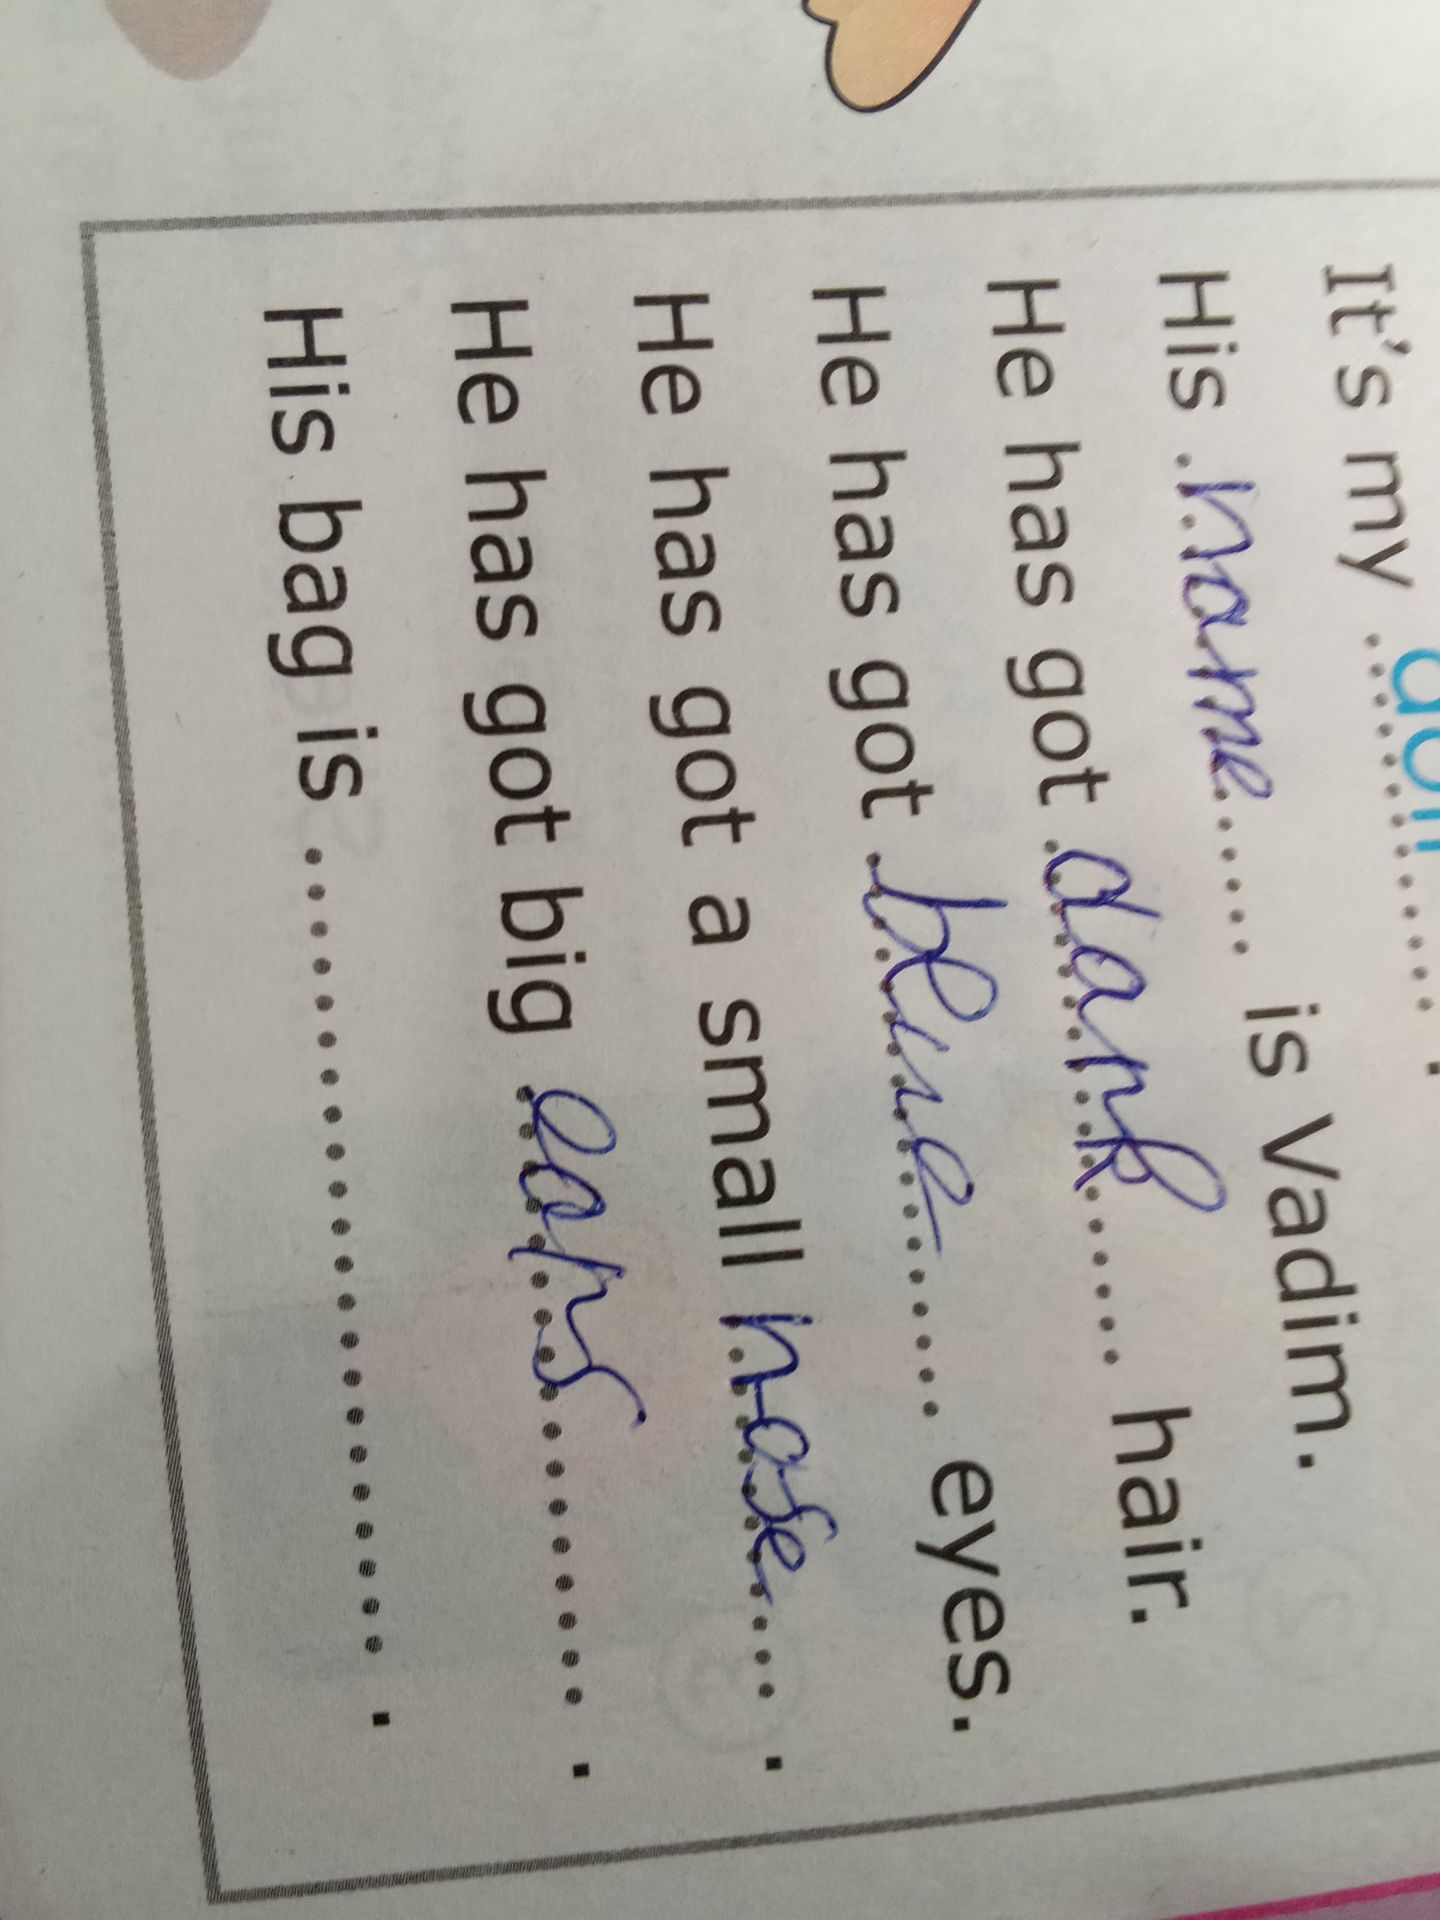 It's my doll .
His name is Vadim.
He has got dark hair.
He has got blue eyes.
He has got a small nose .
He has got big ears .
His bag is .